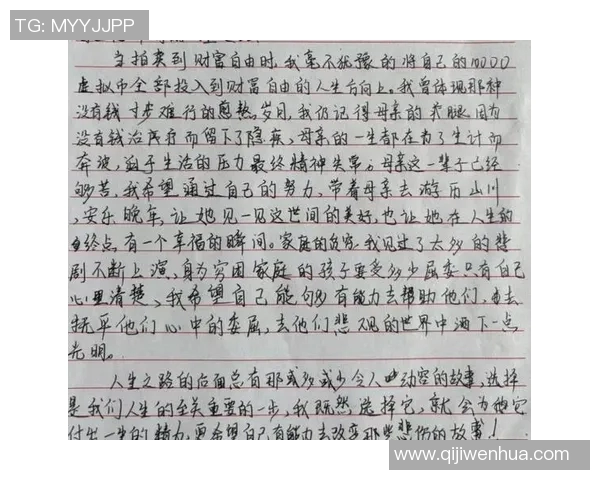 TG: MYYJJPP
当拍卖到财富自由时，我毫不犹豫的将自己的10000
虚拟币全部投入到财富自由的人生方向上。我曾体现那种
没有钱寸步难行的煎熬岁月，我仍记得母亲的 腿，因为
没有钱治疗而留下了隐疾，母亲的一生都在为了生计而
奔波，迫于生活的压力最终精神失常。母亲这一辈子已经
够苦，我希望通过自己的努力，带着母亲去游历山川
，安乐晚年，让她见一见这世间的美好，也让她在人生的
终点有一个幸福的瞬间。家庭的贫穷，我见过了太多的悲
剧不断上演，身为穷困家庭的孩子要受多少屈委只有自己
心里清楚，我希望自己能够有能力去帮助他们，去
抚平他们心中的委屈，去他们悲观的世界中洒下一点
光明。
人生之路的后面总有那或多或少令人动容的故事，选择
是我们人生的至关重要的一步，我既然选择它，就会为他
付出一生的精力，更希望自己有能力去改变那些悲伤的故事！
www.qijiwenhua.com